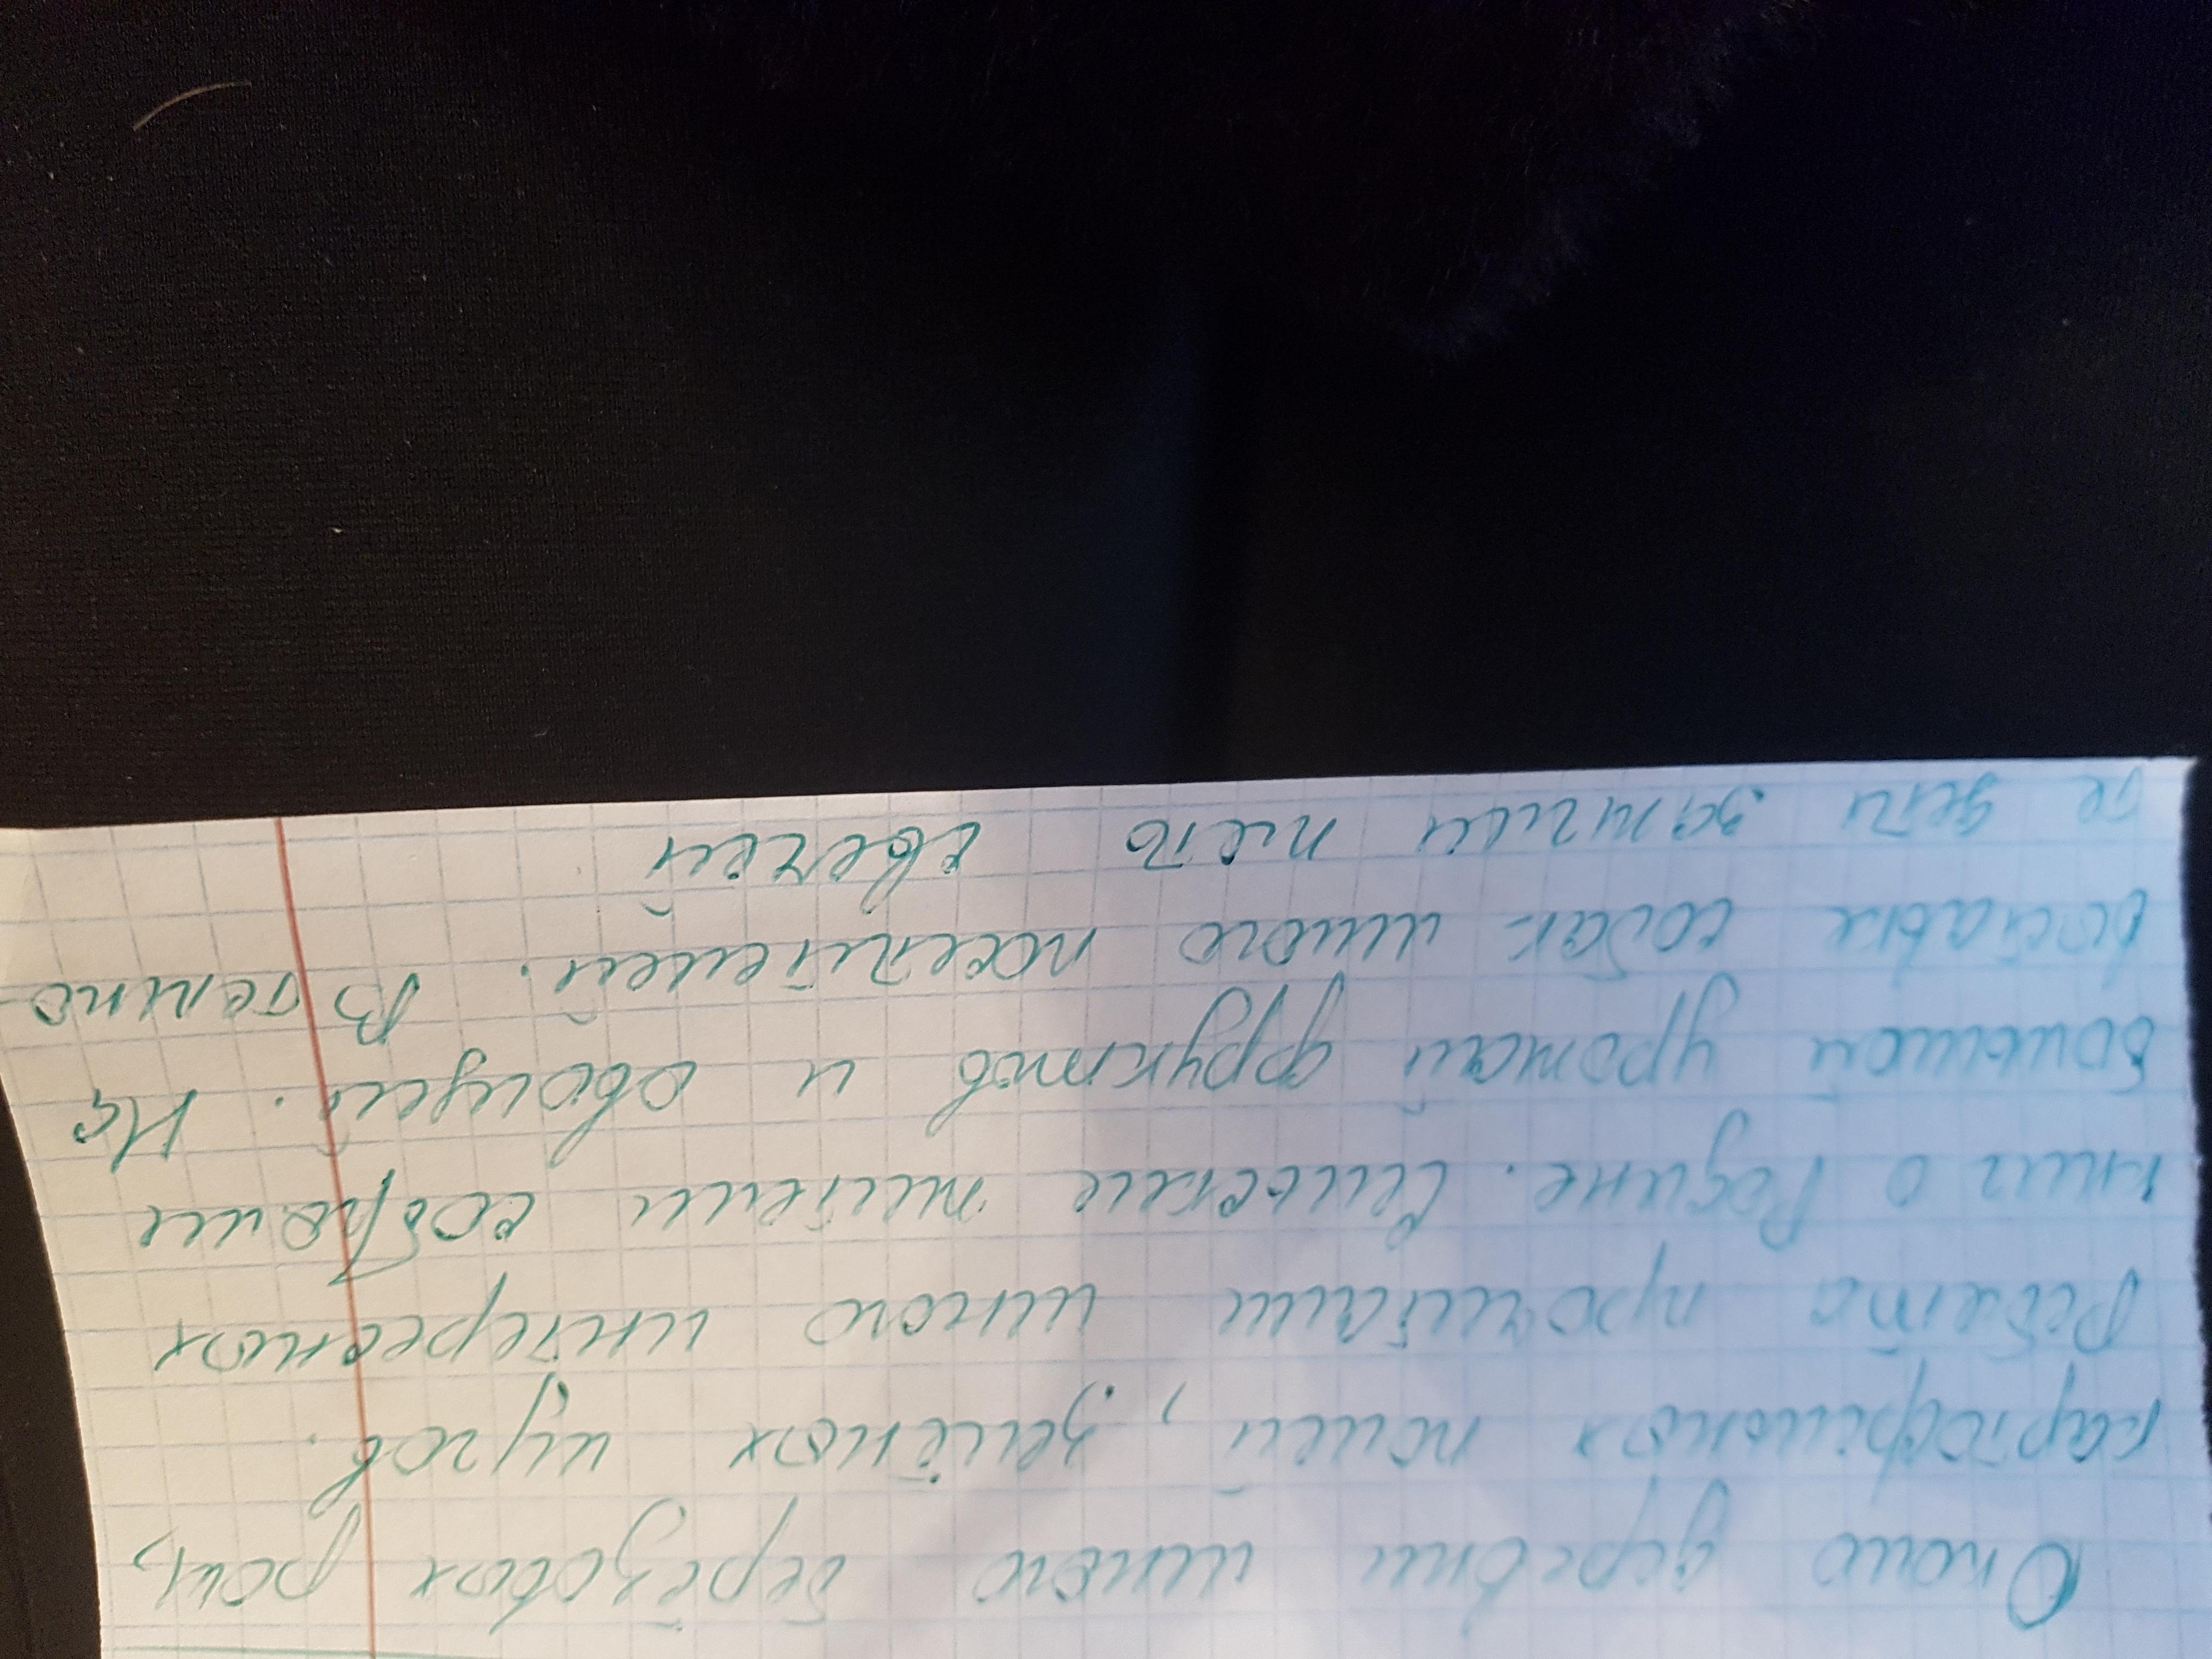 Около деревни много берёзовых рощ,
картофельных полей, зелёных лугов.
Ребята прочитали много интересных
книг о Родине. Сельские жители собрали
большой урожай фруктов и овощей. На
выставке собак много посетителей. В темно
те дети зажгли пять свечей